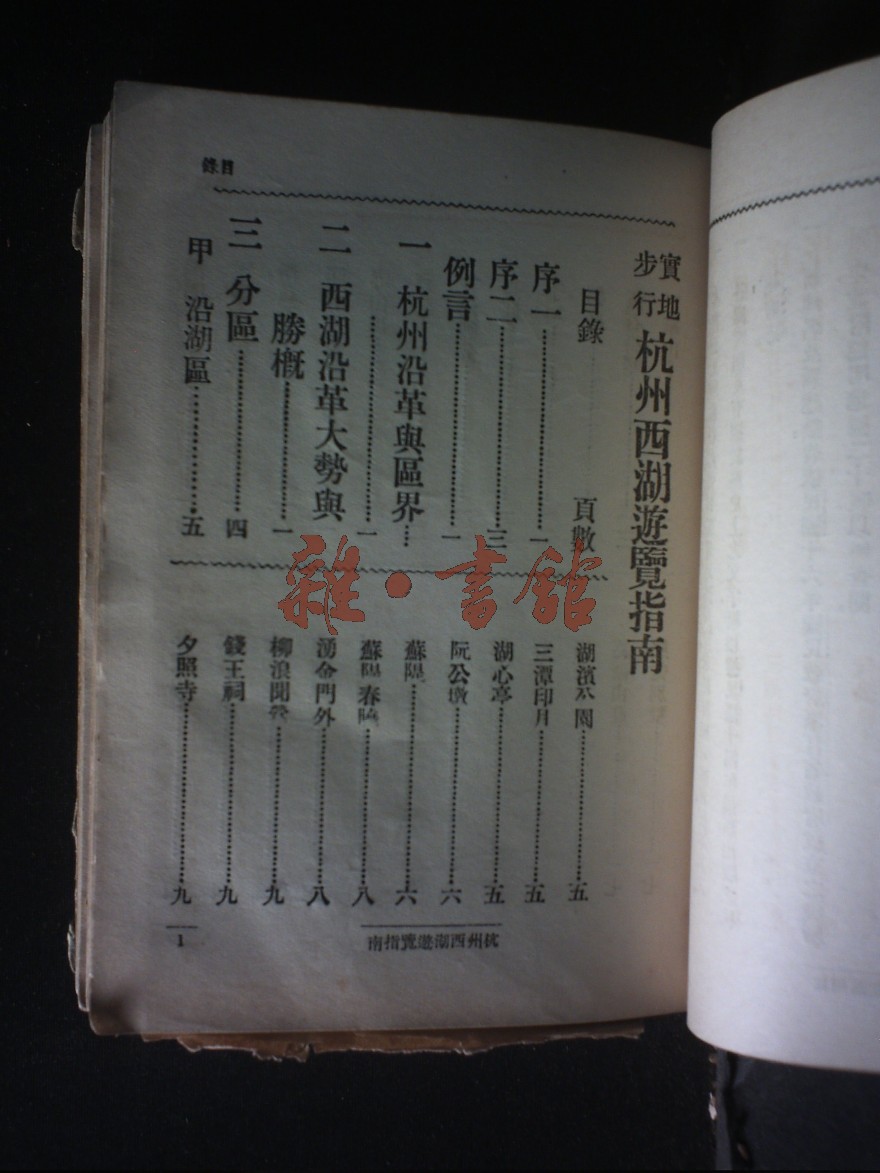 目錄
實地步行 杭州西湖遊覽指南
目錄 頁數
序一………一
序二………三
例言………一
一 杭州沿革與區界…
………一
二 西湖沿革大勢與
勝概………一
三 分區………四
甲 沿湖區………五
湖濱公園………五
三潭印月………五
湖心亭………五
阮公墩………六
蘇隄………六
蘇隄春曉………八
湧金門外………八
柳浪聞鶯………九
錢王祠………九
夕照寺………九
杭州西湖遊覽指南
1
雜·書館